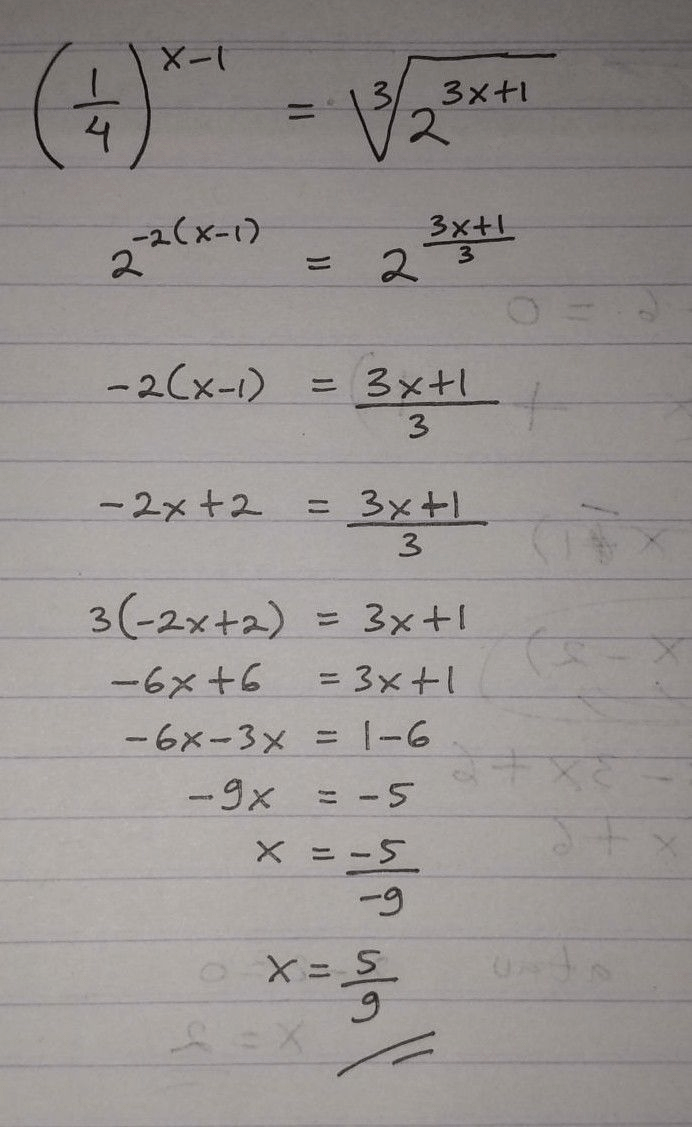 (1/4)^(x-1) = ∛(2^(3x+1))
2^(-2(x-1)) = 2^((3x+1)/3)
-2(x-1) = (3x+1)/3
-2x+2 = (3x+1)/3
3(-2x+2) = 3x+1
-6x+6 = 3x+1
-6x-3x = 1-6
-9x = -5
x = -5/-9
x = 5/9